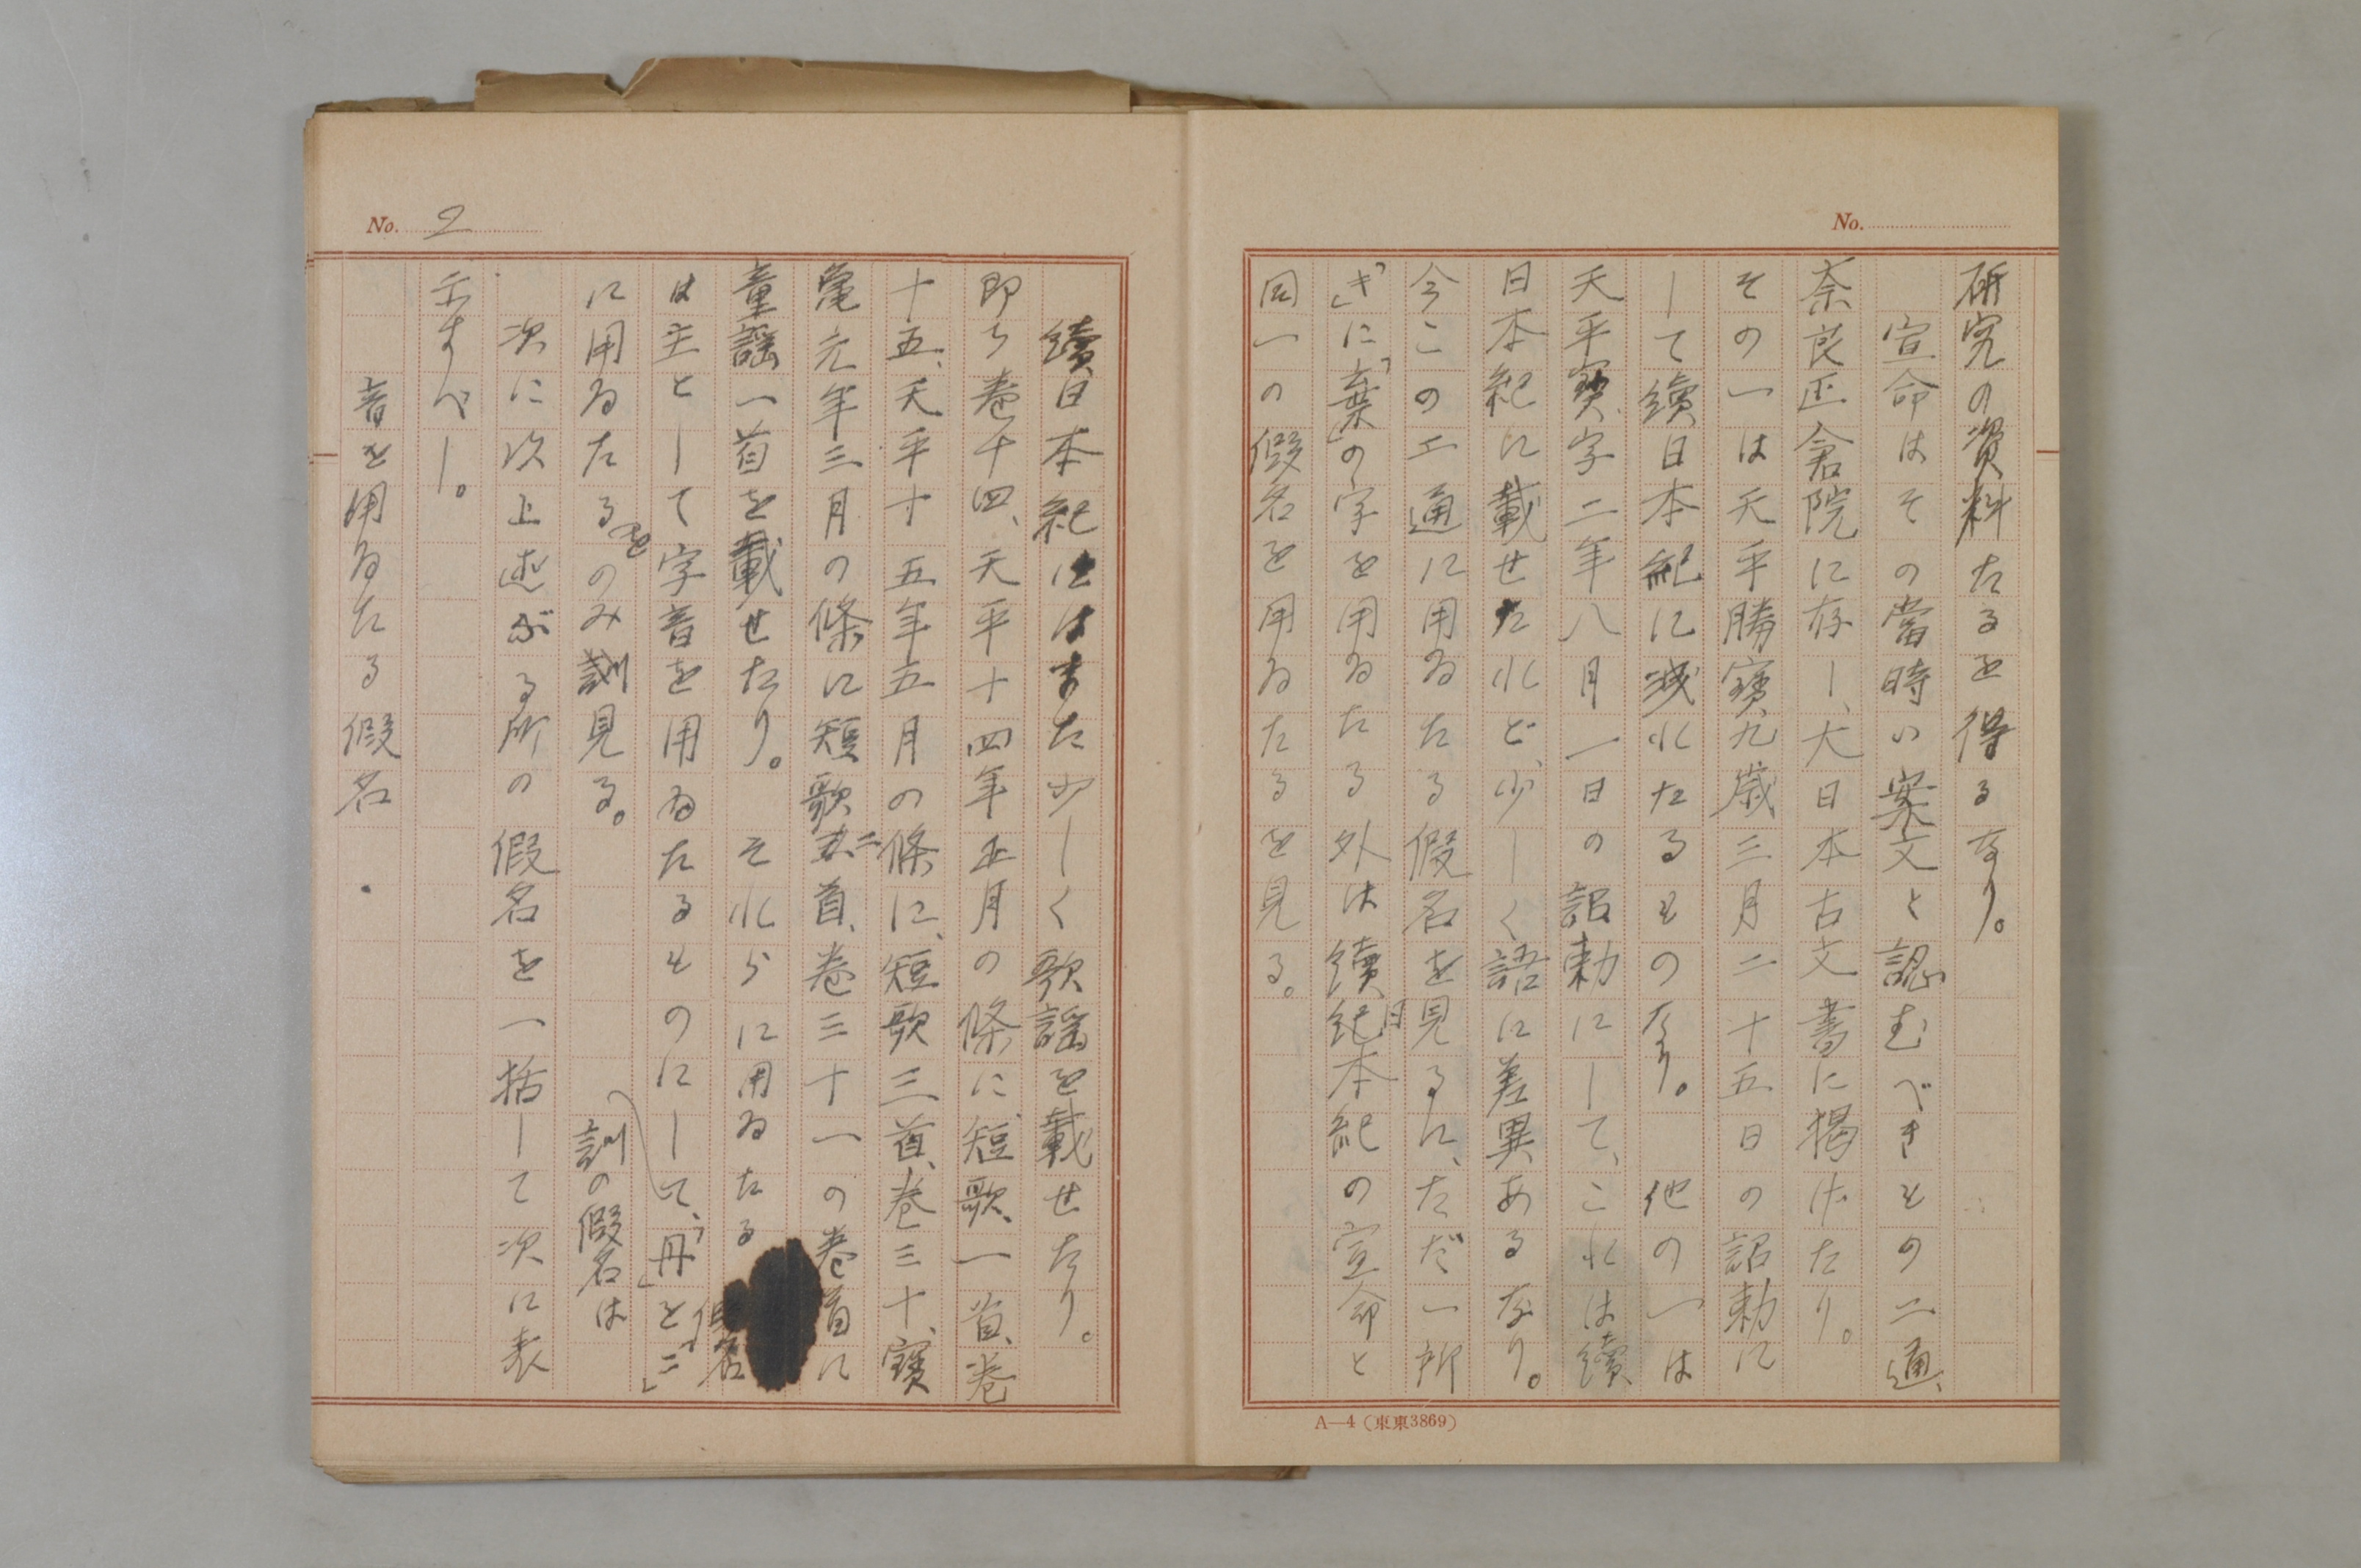 No.
研究の資料たるを得るなり。
宣命はその當時い案文と認むべきもの二通、
奈良正倉院に存し、大日本古文書に掲げたり。
その一は天平勝寶九歳三月二十五日の詔勅に
して續日本紀に洩れたるものなり。 他の一は
天平寶字二年八月一日の詔勅にして、これは續
日本紀に載せたれど、少しく語に差異あるなり。
今この二通に用ゐたる假名を見るに、ただ一所
「き」に「棄」の字を用ゐたる外は續日本紀の宣命と
同一の假名を用ゐたるを見る。
A—4（東東3869）
No. 2
續日本紀にはまた少しく歌謡を載せたり。
即ち卷十四、天平十四年正月の條に、短歌、一首、卷
十五、天平十五年五月の條に、短歌三首、卷三十、寶
亀元年三月の條に短歌二首、卷三十一の卷首に
童謡一首を載せたり。 それらに用ゐたる假名
は主として字音を用ゐたるものにして、訓の假名は「丹」と「三」
に用ゐたるをのみ見る。
次に以上述ぶる所の假名を一括して次に表
示すべし。
音を用ゐたる假名